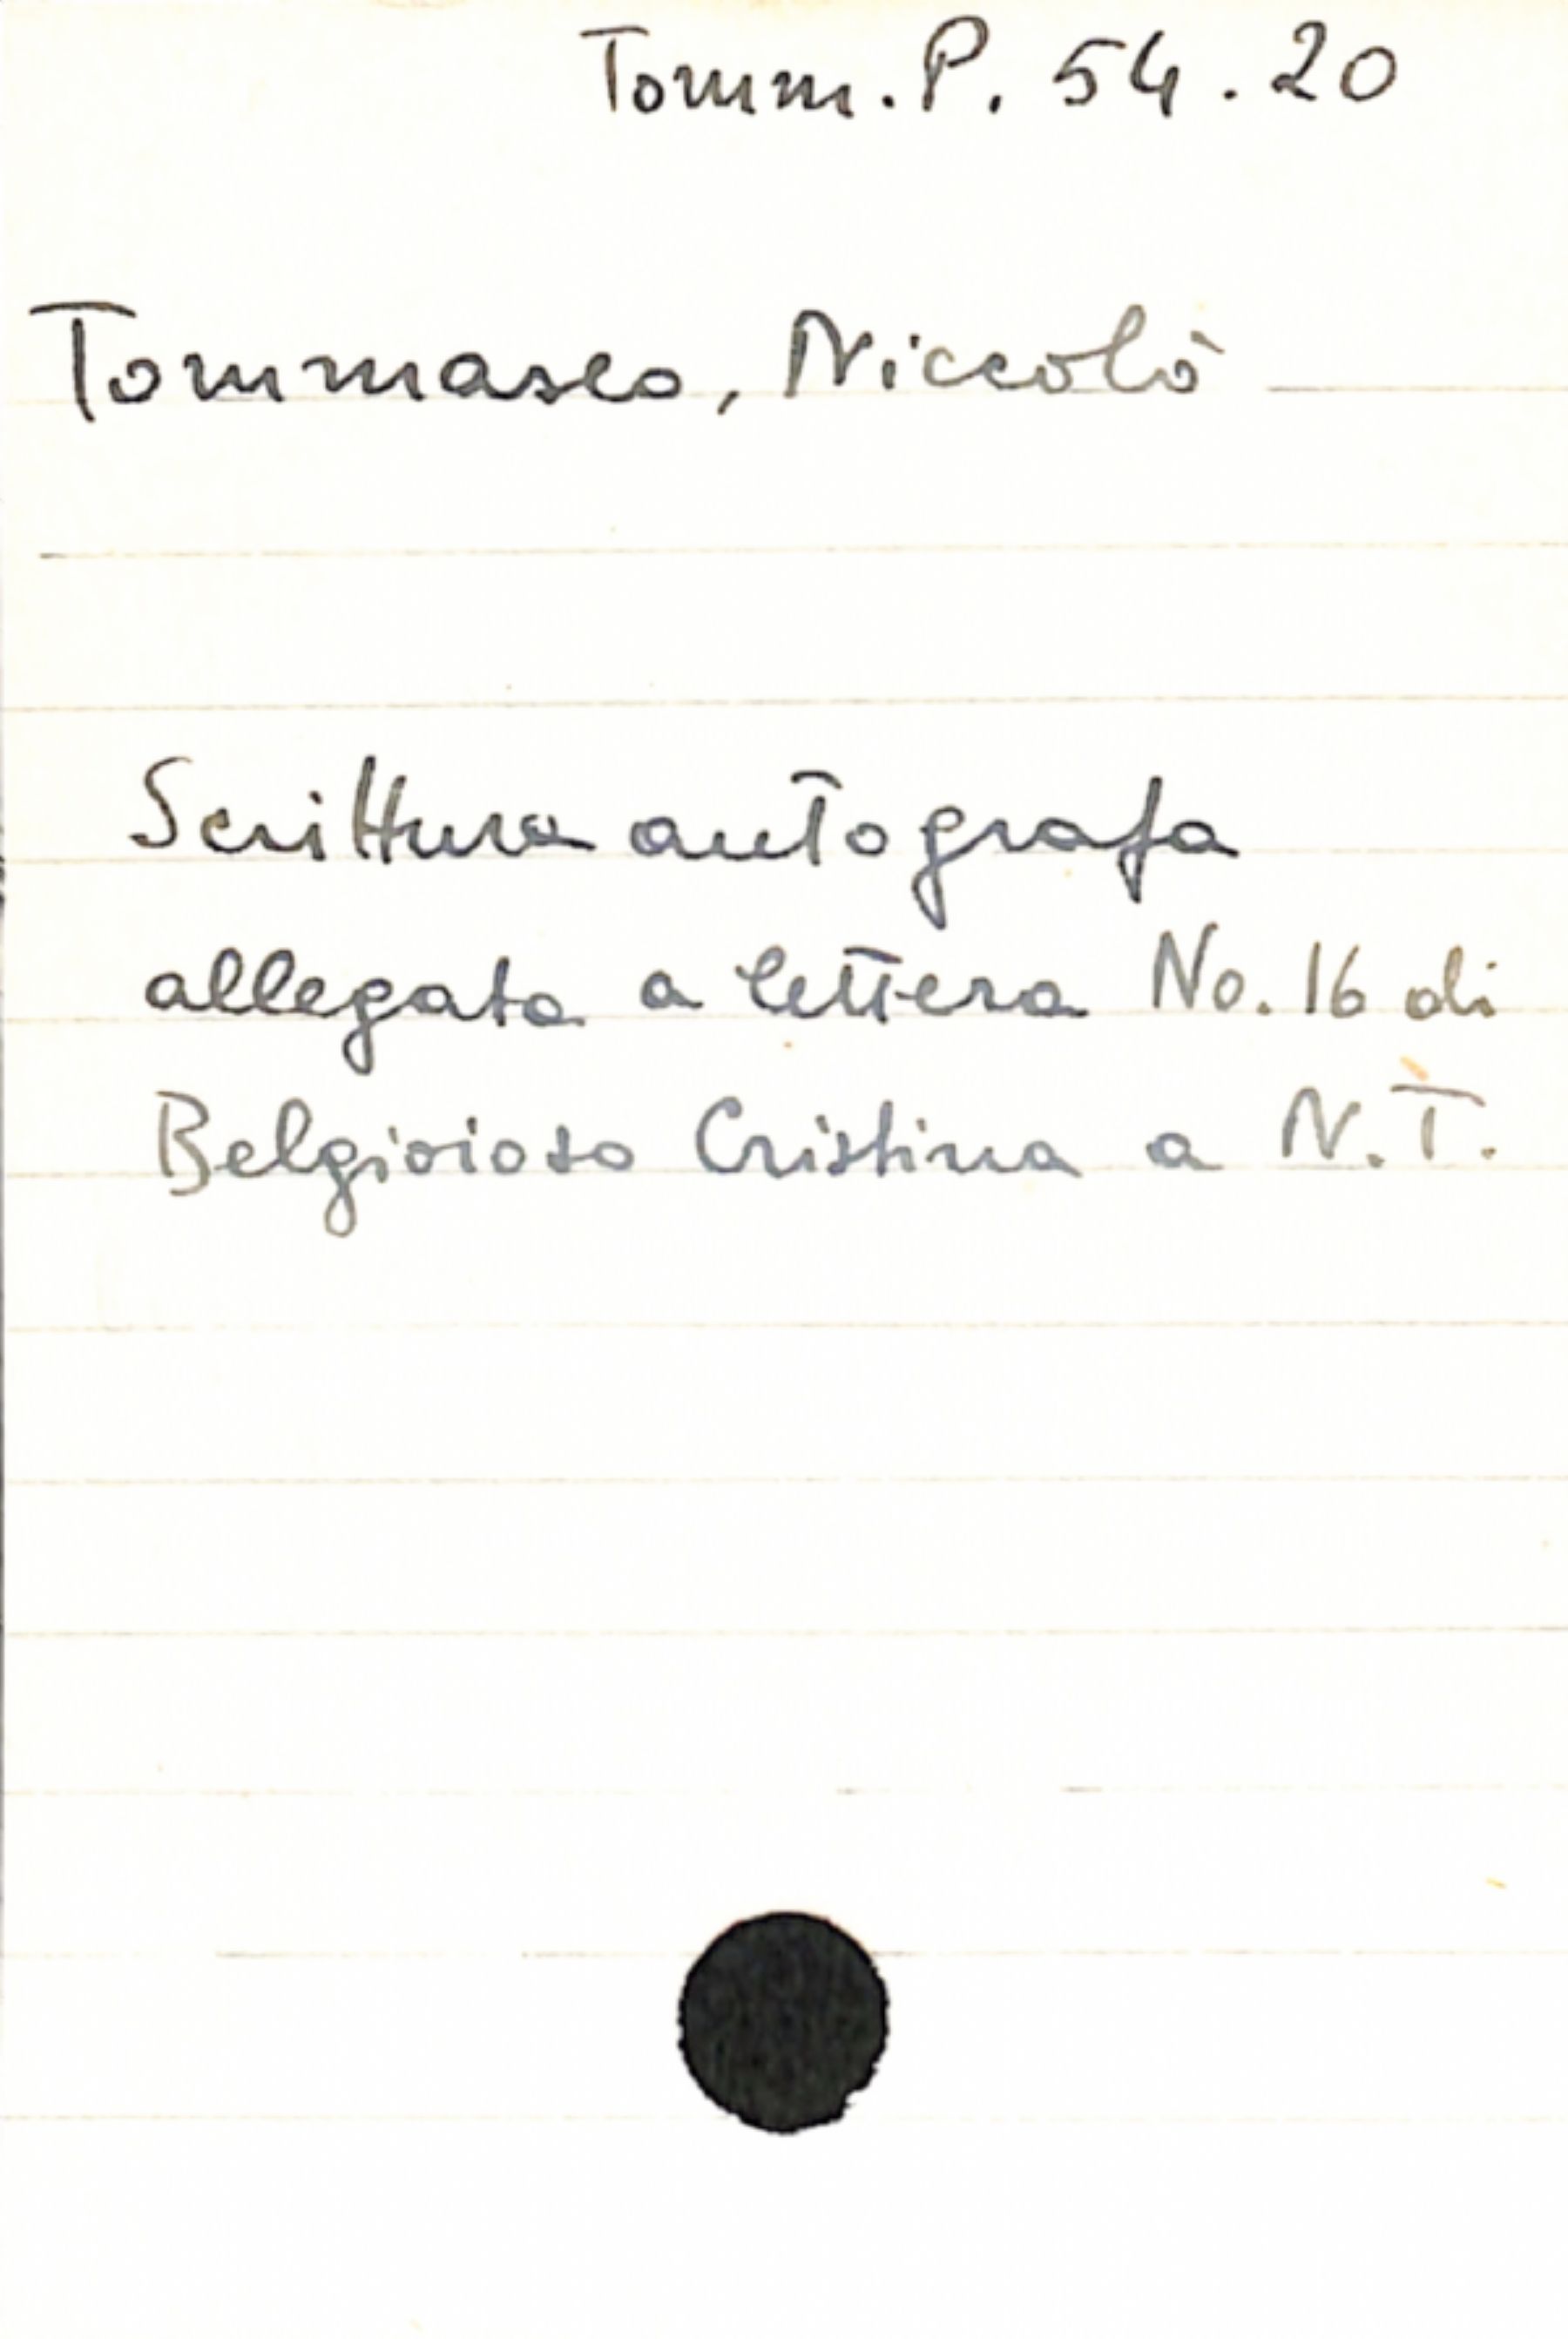 Tomm. P. 54. 20
Tommaseo, Niccolò
Scrittura autografa
allegata a lettera No. 16 di
Belgioioso Cristina a N.T.